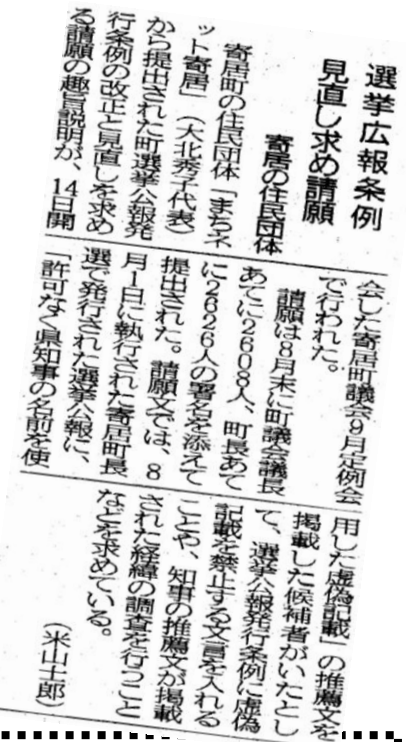 選挙広報条例
見直し求め請願
寄居の住民団体
寄居町の住民団体「まちネ
ット寄居」（大北秀子代表）
から提出された町選挙公報発
行条例の改正と見直しを求め
る請願の趣旨説明が、14日開
会した寄居町議会9月定例会
で行われた。
請願は8月末に町議会議長
あてに2608人、町長あて
に2626人の署名を添えて
提出された。請願文では、8
月1日に執行された寄居町長
選で発行された選挙公報に、
「許可なく県知事の名前を使
用した虚偽記載」の推薦文を
掲載した候補者がいたとし
て、選挙公報発行条例に虚偽
記載を禁止する文言を入れる
ことや、知事の推薦文が掲載
された経緯の調査を行うこと
などを求めている。
（米山士郎）